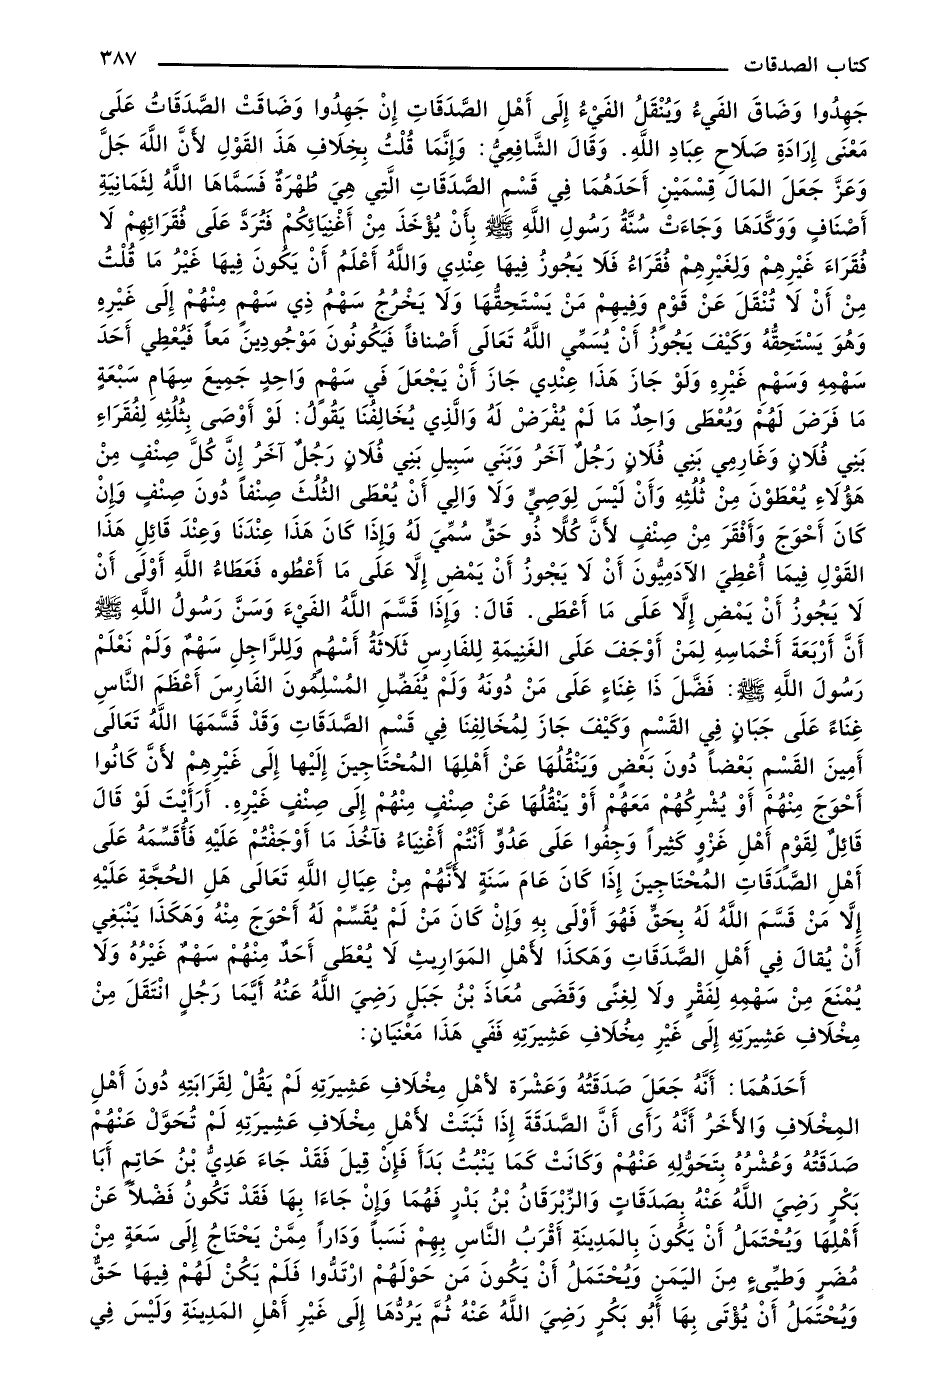 كتاب الصدقات ٣٨٧
جَهِدُوا وَضَاقَ الفَيءُ وَيُنْقَلُ الفَيْءُ إِلَى أَهْلِ الصَّدَقَاتِ إِنْ جَهِدُوا وَضَاقَتْ الصَّدَقَاتُ عَلَى
مَعْنَى إِرَادَةِ صَلَاحِ عِبَادِ اللَّهِ. وَقَالَ الشَّافِعِيُّ: وَإِنَّمَا قُلْتُ بِخِلَافِ هَذَ القَوْلِ لأَنَّ اللَّهَ جَلَّ
وَعَزَّ جَعَلَ المَالَ قِسْمَيْنِ أَحَدَهُمَا فِي قَسْمِ الصَّدَقَاتِ الَّتِي هِيَ طُهْرَةٌ فَسَمَّاهَا اللَّهُ لِثَمَانِيَةِ
أَصْنَافٍ وَوَكَّدَهَا وَجَاءَتْ سُنَّةُ رَسُولِ اللَّهِ ﷺ بِأَنْ يُؤْخَذَ مِنْ أَغْنِيَائِكُمْ فَتُرَدَّ عَلَى فُقَرَائِهِمْ لَا
فُقَرَاءَ غَيْرِهِمْ وَلِغَيْرِهِمْ فُقَرَاءُ فَلَا يَجُوزُ فِيهَا عِنْدِي وَاللَّهُ أَعْلَمُ أَنْ يَكُونَ فِيهَا غَيْرُ مَا قُلْتُ
مِنْ أَنْ لَا تُنْقَلَ عَنْ قَوْمٍ وَفِيهِمْ مَنْ يَسْتَحِقُّهَا وَلَا يَخْرُجُ سَهْمُ ذِي سَهْمٍ مِنْهُمْ إِلَى غَيْرِهِ
وَهُوَ يَسْتَحِقُّهُ وَكَيْفَ يَجُوزُ أَنْ يُسَمِّي اللَّهُ تَعَالَى أَصْنافاً فَيَكُونُونَ مَوْجُودِينَ مَعاً فَيُعْطِي أَحَدَ
سَهْمِهِ وَسَهْمِ غَيْرِهِ وَلَوْ جَازَ هَذَا عِنْدِي جَازَ أَنْ يَجْعَلَ فَي سَهْمٍ وَاحِدٍ جَمِيعَ سِهَامِ سَبْعَةٍ
مَا فَرَضَ لَهُمْ وَيُعْطَى وَاحِدٌ مَا لَمْ يُفْرَضْ لَهُ وَالَّذِي يُخَالِفُنَا يَقُولُ: لَوْ أَوْصَى بِثُلُثِهِ لِفُقَرَاءِ
بَنِي فُلَانٍ وَغَارِمِي بَنِي فُلَانٍ رَجُلٌ آخَرُ وَبَنَي سَبِيلِ بَنِي فُلَانٍ رَجُلٌ آخَرُ إِنَّ كُلَّ صِنْفٍ مِنْ
هَؤُلَاءِ يُعْطَوْنَ مِنْ ثُلُثِهِ وَأَنْ لَيْسَ لِوَصِيٍّ وَلَا وَالِي أَنْ يُعْطَى الثُلُثَ صِنْفاً دُونَ صِنْفٍ وَإِنْ
كَانَ أَحْوَجَ وَأَفْقَرَ مِنْ صِنْفٍ لأَنَّ كُلَّا ذُو حَقٍّ سُمِّيَ لَهُ وَإِذَا كَانَ هَذَا عِنْدَنَا وَعِنْدَ قَائِلِ هَذَا
القَوْلِ فِيمَا أُعْطِيَ الآدَمِيُّونَ أَنْ لَا يَجُوزُ أَنْ يَمْضِ إِلَّا عَلَى مَا أَعْطُوه فَعَطَاءُ اللَّهِ أَوْلَى أَنْ
لَا يَجُوزُ أَنْ يَمْضِ إِلَّا عَلَى مَا أَعْطَى. قَالَ: وَإِذَا قَسَّمَ اللَّهُ الفَيْءَ وَسَنَّ رَسُولُ اللَّهِ ﷺ
أَنَّ أَرْبَعَةَ أَخْمَاسِهِ لِمَنْ أَوْجَفَ عَلَى الغَنِيمَةِ لِلفَارِسِ ثَلَاثَةُ أَسْهُمٍ وَلِلرَّاجِلِ سَهْمٌ وَلَمْ نَعْلَمْ
رَسُولَ اللَّهِ ﷺ: فَضَّلَ ذَا غِنَاءٍ عَلَى مَنْ دُونَهُ وَلَمْ يُفَضِّلِ المُسْلِمُونَ الفَارِسَ أَعْظَمَ النَّاسِ
غِنَاءً عَلَى جَبَانٍ فِي القَسْمِ وَكَيْفَ جَازَ لِمُخَالِفِنَا فِي قَسْمِ الصَّدَقَاتِ وَقَدْ قَسَّمَهَا اللَّهُ تَعَالَى
أَمِينَ القَسْمِ بَعْضاً دُونَ بَعْضٍ وَيَنْقُلُهَا عَنْ أَهْلِهَا المُحْتَاجِينَ إِلَيْها إِلَى غَيْرِهِمْ لأَنَّ كَانُوا
أَحْوَجَ مِنْهُمْ أَوْ يُشْرِكُهُمْ مَعَهُمْ أَوْ يَنْقُلُهَا عَنْ صِنْفٍ مِنْهُمْ إِلَى صِنْفٍ غَيْرِهِ. أَرَأَيْتَ لَوْ قَالَ
قَائِلٌ لِقَوْمٍ أَهْلِ غَزْوٍ كَثِيراً وَجِفُوا عَلَى عَدُوٍّ أَنْتُمْ أَغْنِيَاءُ فَآخُذَ مَا أَوْجَفْتُمْ عَلَيْهِ فَأُقَسِّمَهُ عَلَى
أَهْلِ الصَّدَقَاتِ المُحْتَاجِينَ إِذَا كَانَ عَامَ سَنَةٍ لأَنَّهُمْ مِنْ عِيَالِ اللَّهِ تَعَالَى هَلِ الحُجَّةِ عَلَيْهِ
إِلَّا مَنْ قَسَّمَ اللَّهُ لَهُ بِحَقٍّ فَهُوَ أَوْلَى بِهِ وَإِنْ كَانَ مَنْ لَمْ يُقَسِّمْ لَهُ أَحْوَجَ مِنْهُ وَهَكَذَا يَنْبَغِي
أَنْ يُقالَ فِي أَهْلِ الصَّدَقَاتِ وَهَكذَا لأَهْلِ المَوَارِيثِ لَا يُعْطَى أَحَدٌ مِنْهُمْ سَهْمُ غَيْرُهُ وَلَا
يُمْنَعَ مِنْ سَهْمِهِ لِفَقْرٍ ولَا لِغِنًى وَقَضَى مُعَاذَ بْنُ جَبَلٍ رَضِيَ اللَّهُ عَنْهُ أَيَّمَا رَجُلٍ انْتَقَلَ مِنْ
مِخْلَافِ عَشِيرَتِهِ إِلَى غَيْرِ مِخُلَافِ عَشِيرَتِهِ فَفَي هَذَا مَعْنَيَانِ:
أَحَدَهُمَا: أَنَّهُ جَعَلَ صَدَقَتُهُ وَعَشْرَة لأهْلِ مِخْلَافِ عَشِيرَتِهِ لَمْ يَقُلْ لِقَرَابَتِهِ دُونَ أَهْلِ
المِخْلَافِ وَالأَخَرُ أَنَّهُ رَأَى أَنَّ الصَّدَقَةَ إِذَا ثَبَتَتْ لأَهْلِ مِخْلَافِ عَشِيرَتِهِ لَمْ تُحَوَّلْ عَنْهُمْ
صَدَقَتُهُ وَعُشْرُهُ بِتَحَوُّلِهِ عَنْهُمْ وَكَانَتْ كَمَا يَنْبُتُ بَدَأَ فَإِنْ قِيلَ فَقَدْ جَاءَ عَدِيُّ بْنُ حَاتِمٍ أَبَا
بَكْرٍ رَضِيَ اللَّهُ عَنْهُ بِصَدَقَاتٍ وَالزِّبْرَقَانُ بْنُ بَدْرٍ فَهُمَا وَإِنْ جَاءَا بِهَا فَقَدْ تَكُونُ فَضْلاً عَنْ
أَهْلِهَا وَيُحْتَمَلُ أَنْ يَكُونَ بِالمَدِينَةِ أَقْرَبُ النَّاسِ بِهِمْ نَسَباً وَدَاراً مِمَّنْ يَحْتَاجُ إِلَى سَعَةٍ مِنْ
مُضَرٍ وَطَيِّىءٍ مِنَ اليَمَنِ وَيُحْتَمَلُ أَنْ يَكُونَ مَن حَوْلَهُمْ ارْتَدُّوا فَلَمْ يَكُنْ لَهُمْ فِيهَا حَقٌّ
وَيُحْتَمَلُ أَنْ يُؤْتَى بِهَا أَبُو بَكُرٍ رَضِيَ اللَّهُ عَنْهُ ثُمَّ يَرُدُّهَا إِلَى غَيْرِ أَهْلِ المَدِينَةِ وَلَيْسَ فِي